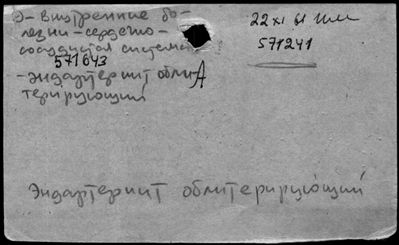 Э- внутренние бо-
лезни - сердечно-
сосудистая система
571643
- эндартериит обли-
терирующий
А
22 XI 61
571241
Эндартериит облитерирующий